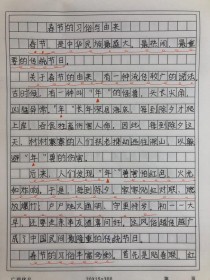 春节的习俗与由来
春节是中华民族最盛大、最热闹、最重
要的传统节日。
关于春节的由来,有一种流传较广的说法
古时候,有一种叫"年"的怪兽,头长尖角,
凶猛异常,"年"兽长年深居海底,每到除夕才爬上
岸来吞食牲畜伤害人命,因此,每到除夕这
天,村村寨寨的人们扶老携幼逃往深山,以躲
避"年"兽的伤害。
后来,人们发现"年"兽害怕红色、火光
和炸响,于是,每到除夕,家家贴红对联、燃
放爆竹、户户灯火通明、守更待岁。初一一大
早,还要走亲串友道喜问好。这风俗越传越广
成了中国民间最隆重的传统节日。
春节的习俗丰富多彩,首先是贴春联、红